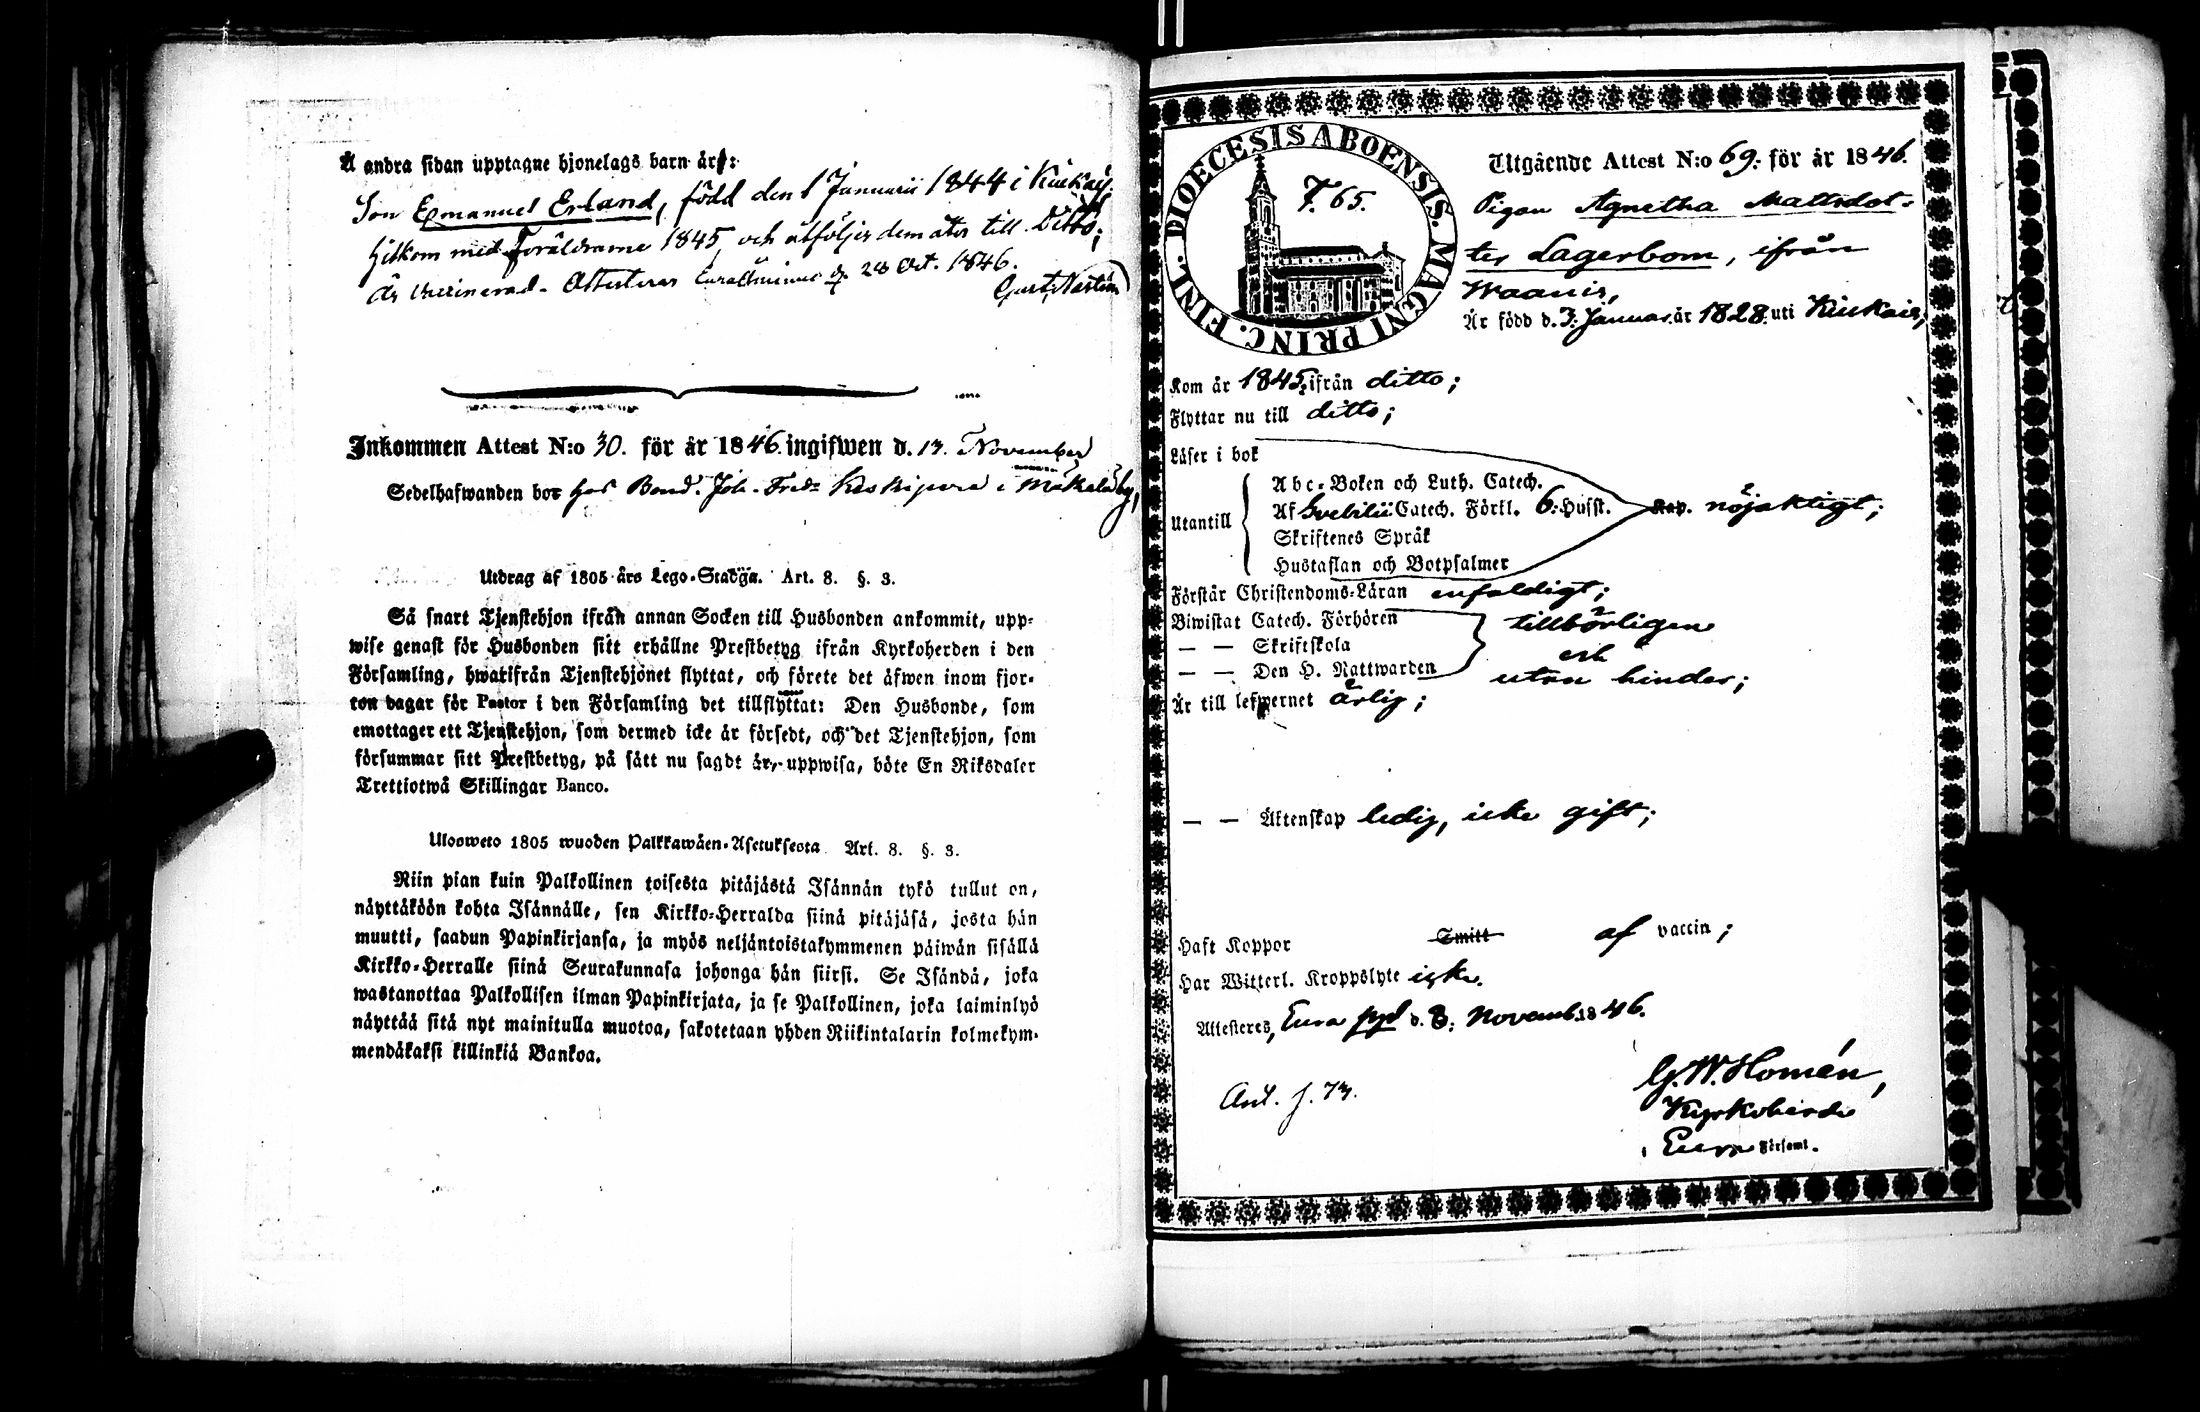 Å andra sidan upptagne hjonelags barn är:
Son Emanuel Erland, född den 1 Januarii 1844 i Kiukais.
hitkom med Föräldrarne 1845, och åtföljer dem åter till Ditto;
är vaccinerad. Attesteras 28 Oct. 1846.
Inkommen Attest N:o 30. för år 1846. ingifwen d. 13. November
Sedelhafwanden bor hos Bond. Joh. Fred: i
Utdrag af 1805 års Lego-Stadga. Art. 8. §. 3.
Så snart Tjenstehjon ifrån annan Socken till Husbonden ankommit, upp-
wise genast för Husbonden sitt erhållne Prestbetyg ifrån Kyrkoherden i den
Församling, hwarifrån Tjenstehjonet flyttat, och förete det äfwen inom fjor-
ton dagar för Pastor i den Församling det tillflyttat: Den Husbonde, som
emottager ett Tjenstehjon, som dermed icke är försedt, och det Tjenstehjon, som
försummar sitt Prestbetyg, på sätt nu sagdt är, uppwisa, böte En Riksdaler
Trettiotwå Skillingar Banco.
Ulosweto 1805 wuoden Palkkawäen-Asetuksesta Art. 8. §. 3.
Niin pian kuin Palkollinen toisesta pitäjästä Isännän tykö tullut on,
näyttäköön kohta Isännälle, sen Kirkko-Herralda siinä pitäjäsä, josta hän
muutti, saadun Papinkirjansa, ja myös neljäntoistakymmenen päiwän sisällä
Kirkko-Herralle siinä Seurakunnasa johonga hän siirsi. Se Isändä, joka
wastanottaa Palkollisen ilman Papinkirjata, ja se Palkollinen, joka laiminlyö
näyttää sitä nyt mainitulla muotoa, sakotetaan yhden Riikintalarin kolmekym-
mendäkaksi killinkiä Bankoa.
DIOECESIS ABOENSIS. MAGNI PRINC. FINL.
F. 65.
Utgående Attest N:o 69. för år 1846.
Pigan Agnetha Mattsdot-
ter Lagerbom, ifrån
Waanis,
Är född d. 3. Januar. år 1828. uti Kiukais,
Kom år 1845. ifrån ditto;
Flyttar nu till ditto;
Läser i bok
Utantill
Abc-Boken och Luth. Catech.
Af Svebilii Catech. Förkl. 6. Husst. Kap. nöjaktigt;
Skriftenes Språk
Hustaflan och Botpsalmer
Förstår Christendoms-Läran enfaldigt;
Biwistat Catech. Förhören tillbörligen
— — Skriftskola och
— — Den H. Nattwarden utan hinder;
Är till lefwernet ärlig;
— — Äktenskap ledig, icke gift;
Haft Koppor Smitt af vaccin;
Har Witterl. Kroppslyte icke.
Attesteres, Eura ppd d. 8. Novemb. 1846.
G. W. Homén,
Ant. f. 73.
Kyrkoherde
i Eura Förseml.